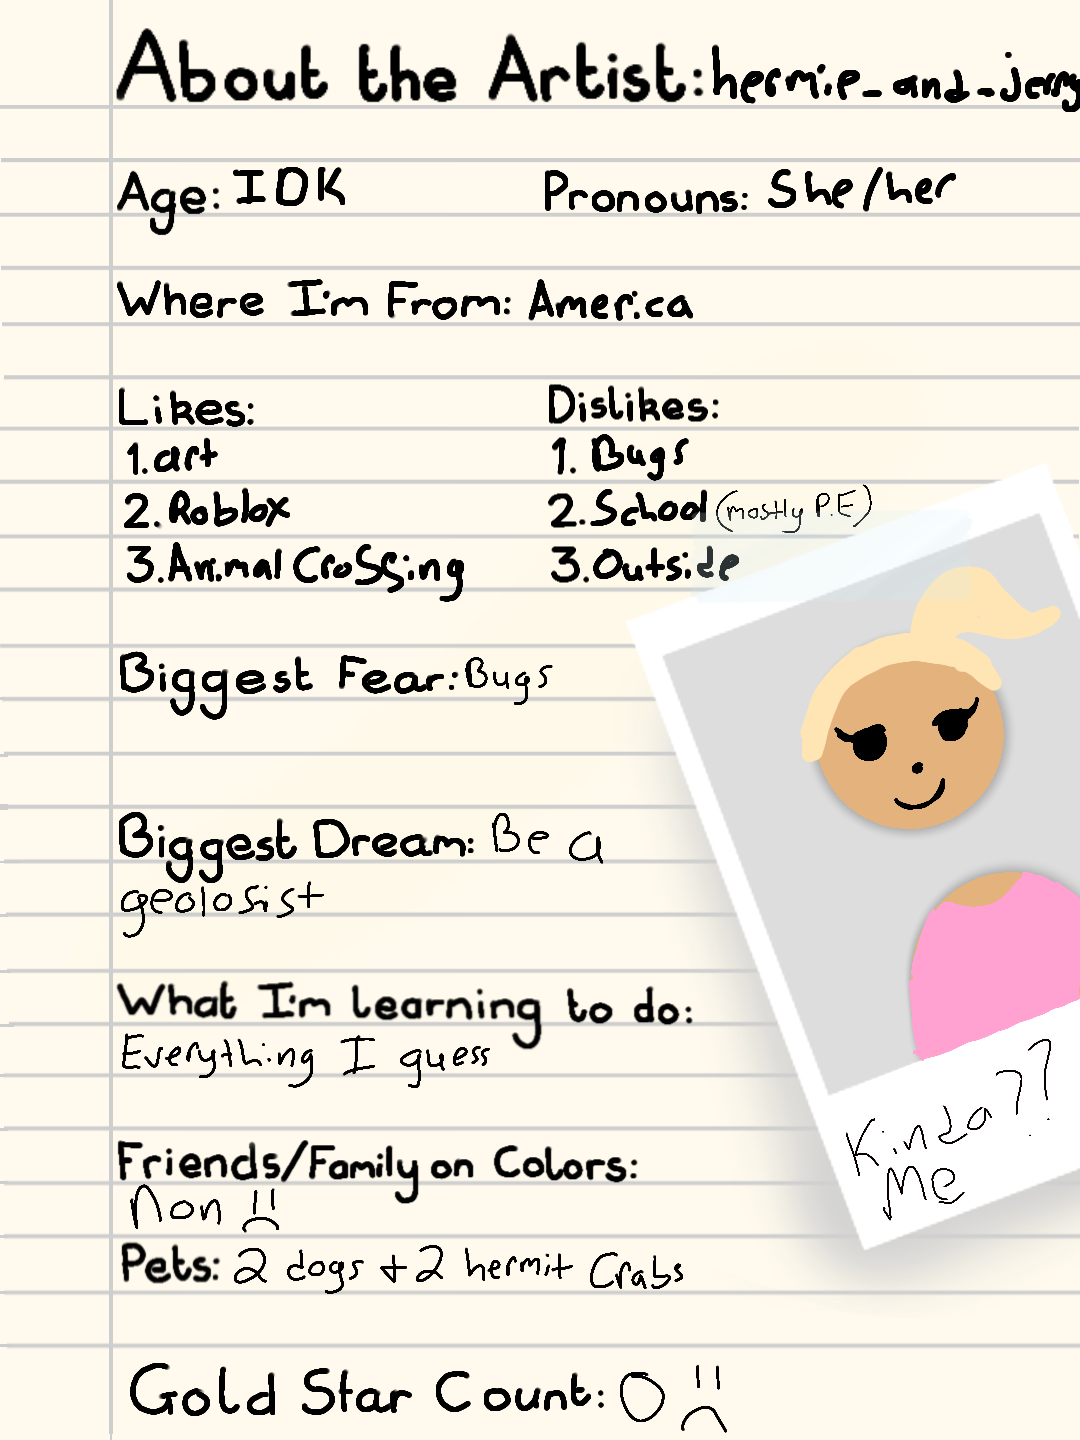 About the Artist: hermie_and_jerry
Age: IDK Pronouns: She/her
Where I'm From: America
Likes: Dislikes:
1. art 1. Bugs
2. Roblox 2. School (mostly P.E)
3. Animal Crossing 3. Outside
Biggest Fear: Bugs
Biggest Dream: Be a
geolosist
What I'm learning to do:
Everything I guess
Friends/Family on Colors:
Non
Pets: 2 dogs + 2 hermit Crabs
Gold Star Count: 0
Kinda??
Me